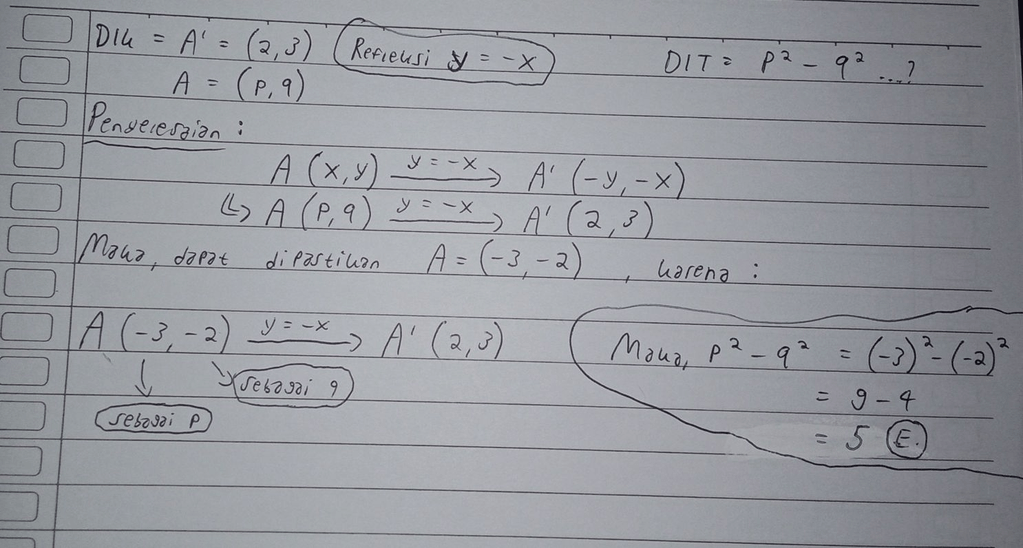 DIK = A' = (2,3) Refleksi y = -x DIT = p² - q² ...?
A = (p,q)
Penyelesaian :
A (x,y) y = -x → A' (-y,-x)
↳ A (p,q) y = -x → A' (2,3)
Maka, dapat dipastikan A = (-3,-2) , karena :
A (-3,-2) y = -x → A' (2,3)
sebagai q
sebagai p
Maka, p² - q² = (-3)² - (-2)²
= 9 - 4
= 5 E.